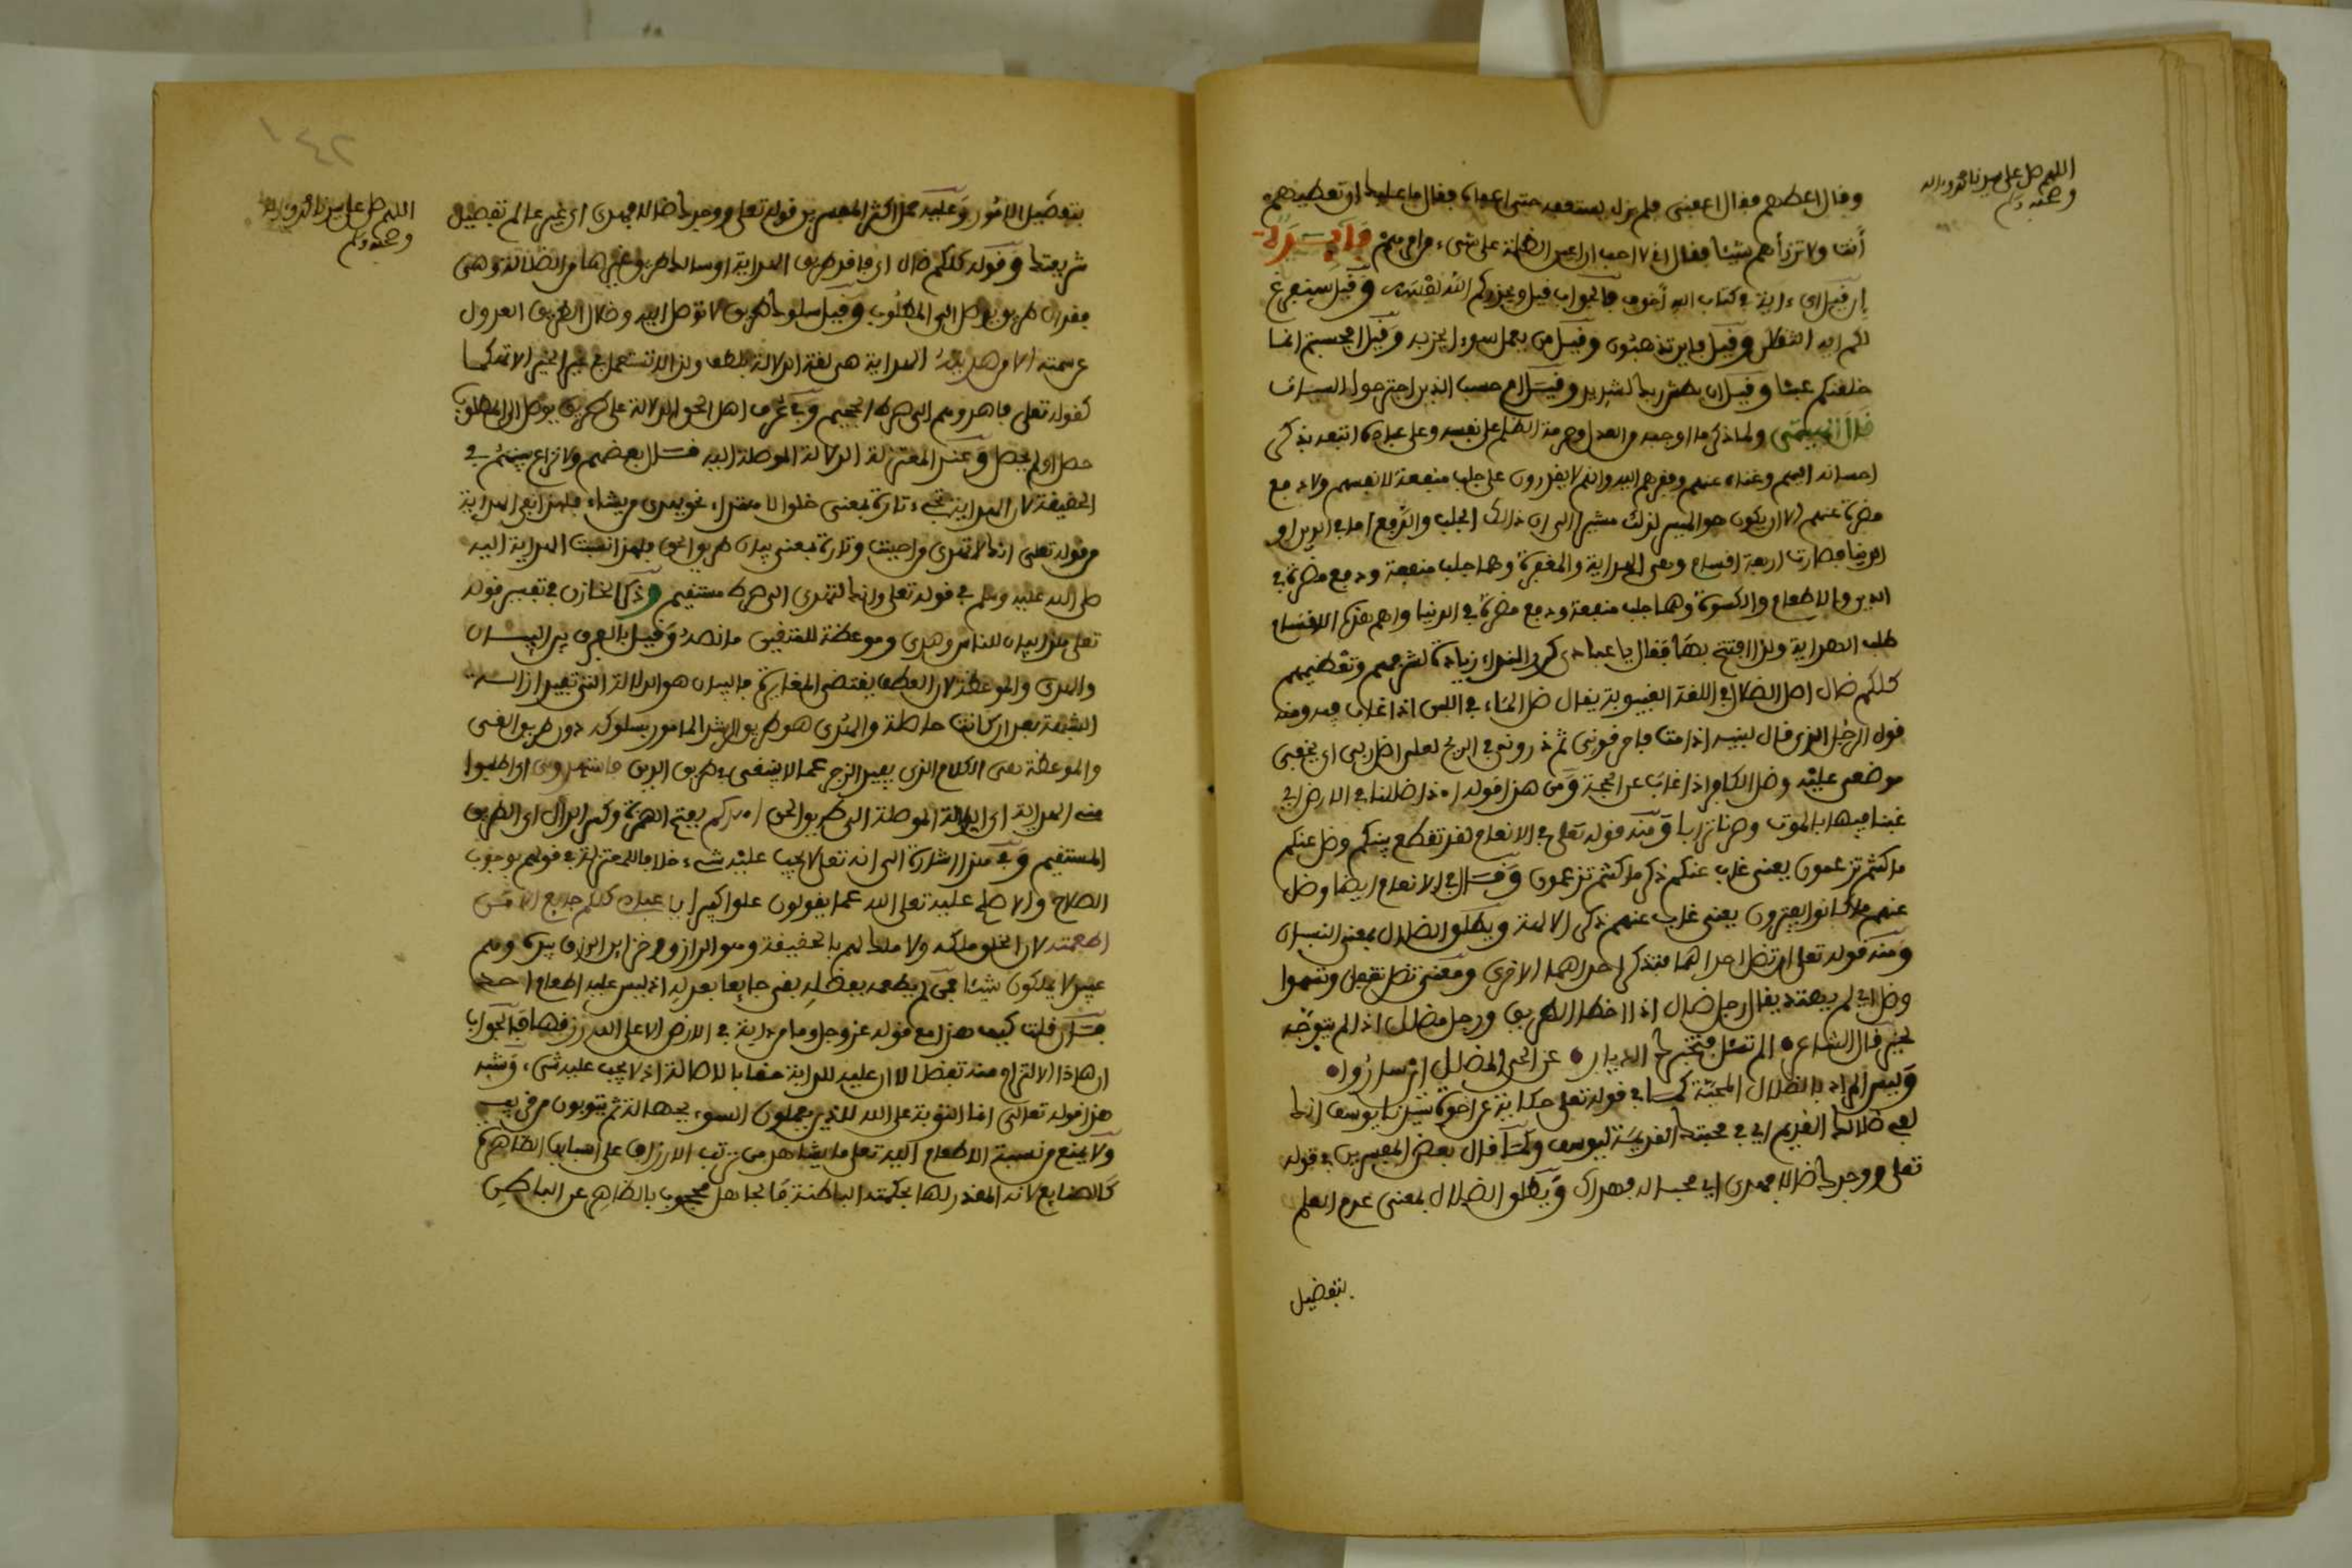 اللهم صل على سيدنا محمد وءاله
وصحبه وسلم
وقال اعطهم فقال اعفنى فلم يزل يستعفه حتى اعفاه فقال ما عليك ان تعطيهم
أنت ولا ترزأهم شيئا فقال انى لا احب ان اعين الظلمة على شىء من امرهم فايدة
إن قيل اى ءاية فى كتاب الله أخوف فالجواب قيل ويحذركم الله نفسه وقيل سنفرغ
لكم ايه الثقلن وقيل فاين تذهبون وقيل من يعمل سوءا يجز به وقيل افحسبتم انما
خلقنكم عبثا وقيل ان بطش ربك لشديد وقيل ام حسب الذين اجترحوا السيئات
قال المص ولما ذكر ما اوجبه من العدل وحرمة الظلم على نفسه وعلى عباده اتبعه بذكر
احسانه اليهم وغناه عنهم وفقرهم اليه وانهم لا يقدرون على جلب منفعة لانفسهم ولا دفع
مضرة عنهم الا ان يكون هو الميسر لذلك مشيرا الى ان ذالك الجلب والدفع اما فى الدين او
الدنيا فصارت اربعة اقسام وهى الهداية والمغفرة وهما جلب منفعة ودفع مضرة فى
الدين والاطعام والكسوة وهما جلب منفعة ودفع مضرة فى الدنيا واهم هذه الاقسام
طلب الهداية ولذا افتتح بها فقال يا عبادى كرر النداء زيادة لشرفهم وتعظيمهم
كلكم ضال اصل الضلال فى اللغة الغيبوبة يقال ضل الماء فى اللبن اذا غاب فيه ومنه
قول الرجل الذى قال لبنيه اذا مت فاحرقونى ثم ذرونى فى الريح لعلى اضل ربى اى يخفى
موضعى عليه وضل الكافر اذا غاب عن الحجة ومن هذا قوله اءذا ضللنا فى الارض اى
غبنا فيها بالموت وصرنا ترابا ومنه قوله تعلى فى الانعام لقد تقطع بينكم وضل عنكم
ما كنتم تزعمون يعنى غاب عنكم ذكر ما كنتم تزعمون وقال فى الانعام ايضا وضل
عنهم ما كانوا يفترون يعنى غاب عنهم ذكر الالهة ويطلق الضلال بمعنى النسيان
ومنه قوله تعلى ان تضل احداهما فتذكر احداهما الاخرى ومعنى تضل تغفل وتسهوا
وضل اى لم يهتد يقال رجل ضال اذا اخطا الطريق ورجل مضلل اذا لم يتوجه
لخير قال الشاعر • الم تسئل فتخبرك الديار • عن الحى المضلل اين ساروا •
وليس المراد بالضلال المحبة كما فى قوله تعلى حكاية عن اخوة سيدنا يوسف انك
لفى ضلالك القديم اى فى محبتك القديمة ليوسف وكما قال بعض المفسرين فى قوله
تعلى ووجدك ضالا فهدى اى محبا له فهداك ويطلق الضلال بمعنى عدم العلم
بتفصيل
١٤٢
اللهم صل على سيدنا محمد وءاله
وصحبه وسلم
بتفصيل الامور وعليه حمل اكثر المفسرين قوله تعلى ووجدك ضالا فهدى اى غير عالم تفصيل
شريعتك وقوله كلكم ضال اى فاقد طريق الهداية او سالك طريق غيرها من الضلالة وهى
فقدان طريق يوصل الى المطلوب وقيل سلوك طريق لا توصل اليه وضلال الطريق العدول
عن سمته الا من هديته الهداية هى لغة الدلالة بلطف ولذا لا تستعمل فى غير الخير الا تهكما
كقوله تعلى فاهدوهم الى صراط الجحيم وفى عرف اهل الحق الدلالة على طريق يوصل الى المطلوب
حصل او لم يحصل وعند المعتزلة الدلالة الموصلة اليه قال بعضهم ولا نزاع بينهم فى
الحقيقة لان الهداية تجىء تارة بمعنى خلق الاهتداء نحو يهدى من يشاء فلهذا نفى الهداية
من قوله تعلى انك لا تهدى من احببت وتارة بمعنى بيان طريق الحق فلهذا نسبت الهداية اليه
صلى الله عليه وسلم فى قوله تعلى وانك لتهدى الى صراط مستقيم وذكر الخازن فى تفسير قوله
تعلى هذا بيان للناس وهدى وموعظة للمتقين ما نصه وقيل بالفرق بين البيان
والهدى والموعظة لان العطف يقتضى المغايرة فالبيان هو الدلالة التى تفيد ازالة
الشبهة بعد ان كانت حاصلة والهدى هو طريق الرشد المامور بسلوكه دون طريق الغى
والموعظة هى الكلام الذى يفيد الزجر عما لا ينبغى فى طريق الدين فاستهدونى اى اطلبوا
منى الهداية اى الدلالة الموصلة الى طريق الحق اهدكم بفتح الهمزة وكسر الدال اى الطريق
المستقيم وفى هذا اشارة الى انه تعلى لا يجب عليه شىء خلافا للمعتزلة فى قولهم بوجوب
الصلاح والاصلح عليه تعلى الله عما يقولون علوا كبيرا يا عبادى كلكم جايع الا من
اطعمته لان الخلق ملكه ولا ملك لهم بالحقيقة وهو الرازق وخزاين الرزق بيده وهم
عبيد لا يملكون شيئا فمن لم يطعمه بفضله بقى جايعا بعدله اذ ليس عليه اطعام احد
فان قلت كيف هذا مع قوله عز وجل وما من دابة فى الارض الا على الله رزقها فالجواب
ان هاذا الالتزام منه تفضلا لا ان عليه للدابة حقا بالاصالة اذ لا يجب عليه شىء وشبه
هذا قوله تعالى انما التوبة على الله للذين يعملون السوء بجهالة ثم يتوبون من قريب
ولا يمنع من نسبة الاطعام اليه تعلى ما يشاهد من ترتب الارزاق على اسبابها الظاهرة
كالصنايع لانه المقدر لها بحكمته الباطنة فالجاهل محجوب بالظاهر عن الباطن